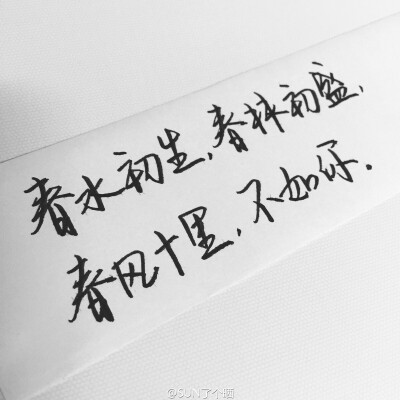 春水初生，春林初盛，
春风十里，不如你．
@SUN了个晒